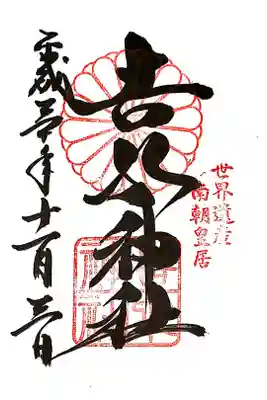 世界遺産
南朝皇居
吉水神社
平成年十一月三日